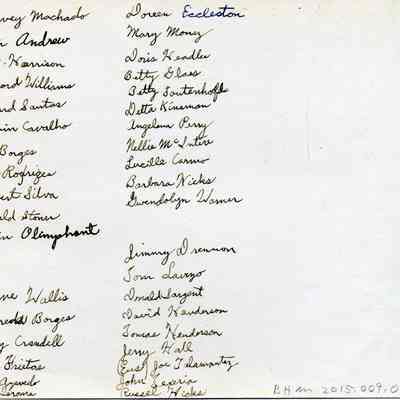 vey Machado
Andrew
Harrison
ord Williams
rd Santos
Carvalho
Borges
Rodriges
ert Silva
ald Stoner
Olemphant
ne Wallis
Borges
Crandell
Freitas
Azevedo
Doreen Eccleston
Mary Money
Doris Headley
Betty Glass
Betty
Detta Kinsman
Angelena Perry
Nellie McIntire
Lucille Carmo
Barbara Hicks
Gwendolyn Warner
Jimmy Drennon
Tom
Donald Sargent
David Henderson
Tomas Henderson
Jerry Hall
Joe
John
Russel Hicks
BHM 2015.009.0